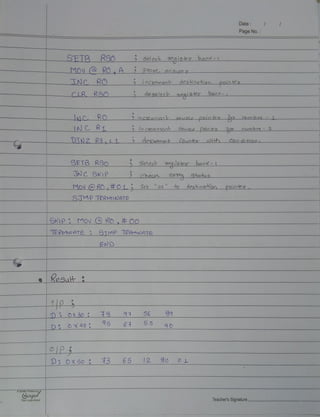 Date : / /
Page No. :
SETB RS0 ; select register bank-1
MOV @ R0, A ; store answer
INC R0 ; increment destination pointer
CLR RS0 ; deselect register bank-1
INC R0 ; increment source pointer for number-1
INC R1 ; increment source pointer for number-2
DJNZ R3, L1 ; decrement counter with condition.
SETB RS0 ; select register bank-1
JNC SKIP ; check carry status
MOV @ R0, #01 ; "01" to destination pointer.
SJMP TERMINATE
SKIP: MOV @ R0, #00
TERMINATE : SJMP TERMINATE
END
• Result :
I/P ;
D: 0x30: 78 97 56
D: 0x40: 95 67 55 90
O/P ;
D: 0x50: 73 65 12 01
Teacher's Signature